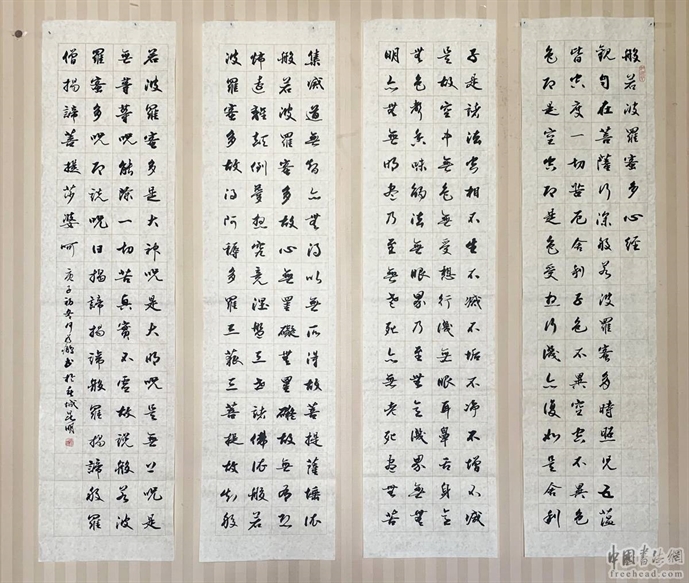 般若波羅蜜多心経
觀自在菩薩行深般若波羅蜜多時照見五蘊
皆空度一切苦厄舍利子色不異空空不異色
色即是空空即是色受想行識亦復如是舍利
子是諸法空相不生不滅不垢不净不增不減
是故空中無色無受想行識無眼耳鼻舌身意
無色聲香味觸法無眼界乃至無意識界無無
明亦無無明盡乃至無老死亦無老死盡無苦
集滅道無智亦無得以無所得故菩提薩埵依
般若波羅蜜多故心無罣礙無罣礙故無有恐
怖遠離顛倒夢想究竟涅盤三世諸佛依般若
波羅蜜多故得阿耨多羅三藐三菩提故知般
若波羅蜜多是大神咒是大明咒是無上咒是
無等等咒能除一切苦真實不虛故說般若波
羅蜜多咒即說咒曰揭諦揭諦般羅揭諦般羅
僧揭諦菩提莎婆呵 庚子初冬 書於春城昆明
中國書法網
freehead.com